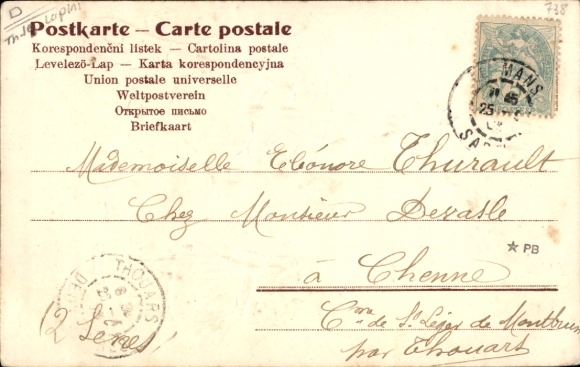 D
738
Postkarte – Carte postale
Korespondenční lístek – Cartolina postale
Levelező-Lap – Karta korespondencyjna
Union postale universelle
Weltpostverein
Открытое письмо
Briefkaart
MANS
25
SAR
Mademoiselle Eléonore Thurault
Chez Monsieur Devasle
à Chenne
★ PB
Cne de St Léger de Montbrun
par Thouars
THOUARS
(2 Sèvres)